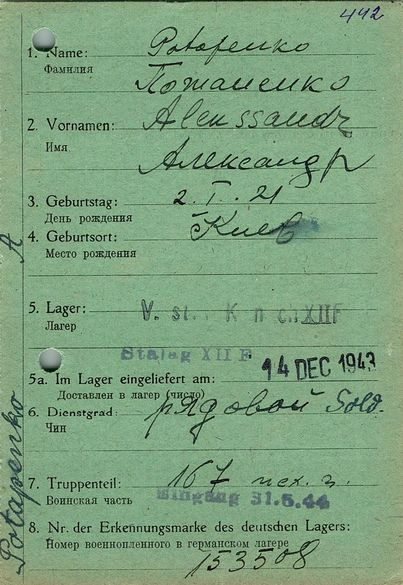 442
1. Name: Potapenko
Фамилия Потапенко
2. Vornamen: Alenssandr
Имя Александр
3. Geburtstag: 2. I. 21
День рождения
4. Geburtsort: Киев
Место рождения
5. Lager: XIIF
Лагер
Stalag XII F
14 DEC 1943
5a. Im Lager eingeliefert am:
Доставлен в лагер (число)
6. Dienstgrad: рядовой Sold.
Чин
7. Truppenteil: 167
Воинская часть Eingang 31.5.44
8. Nr. der Erkennungsmarke des deutschen Lagers:
Номер военнопленного в германском лагере
153508
Potapenko A